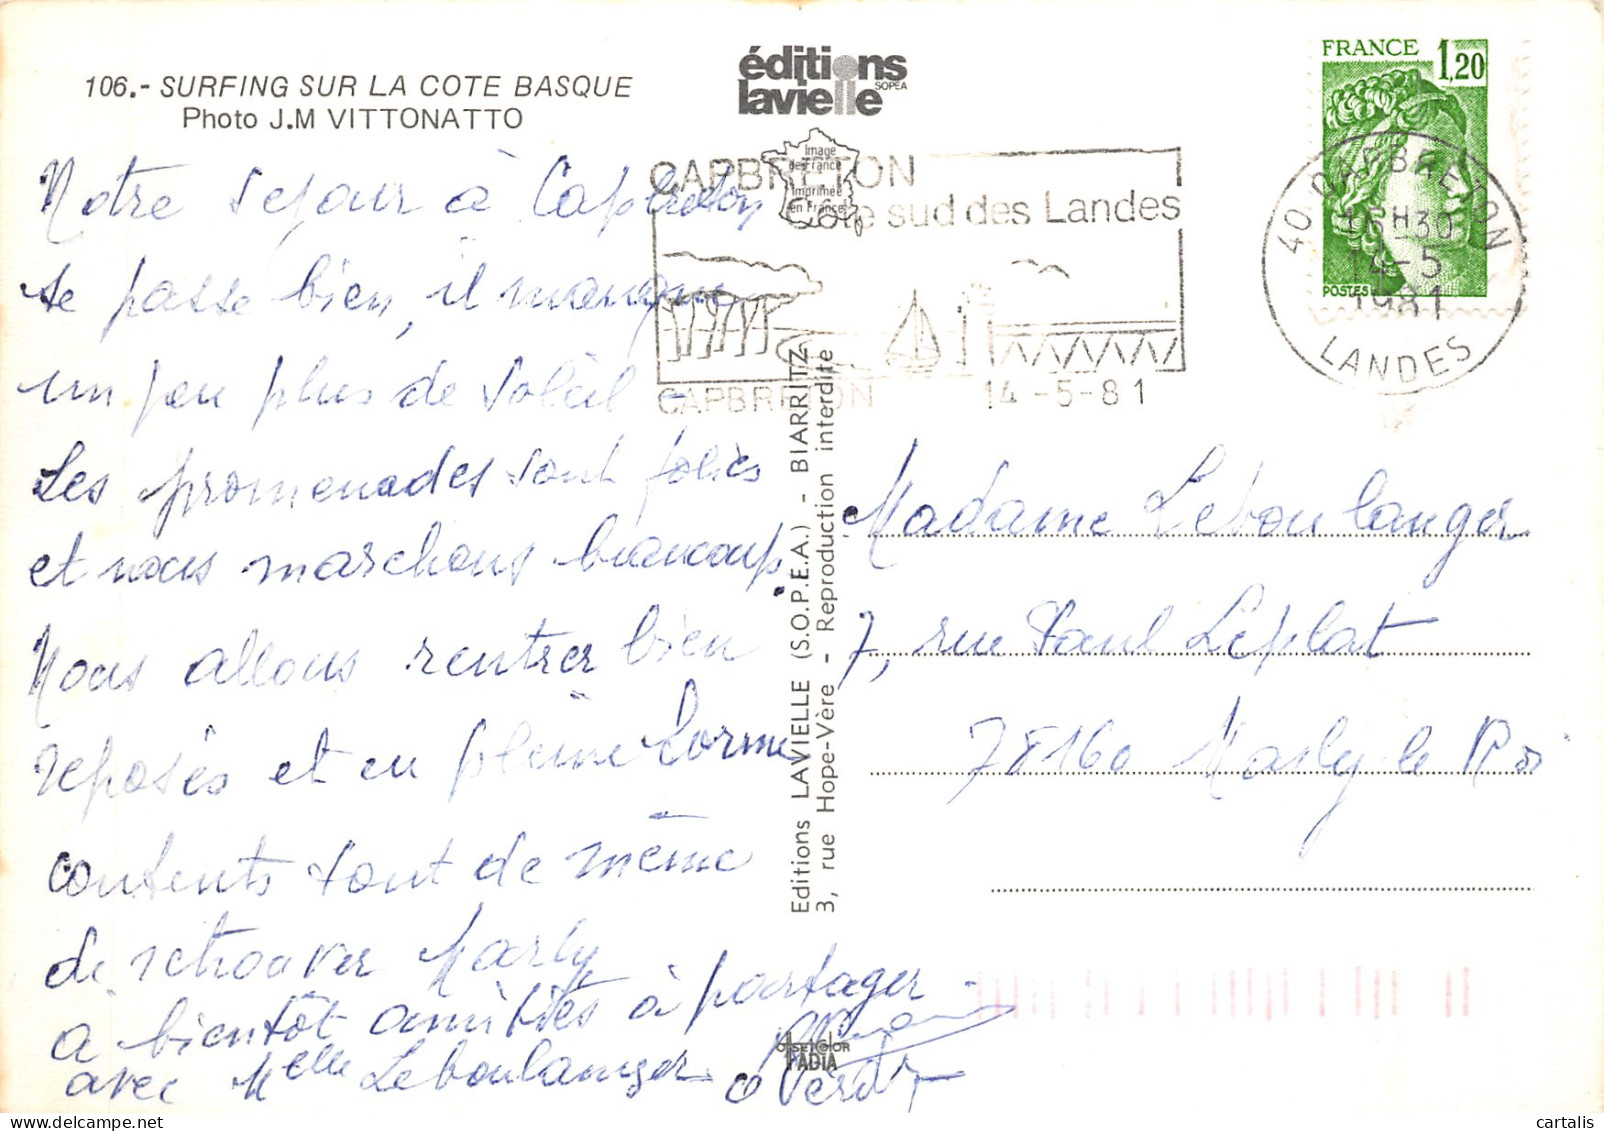 106.- SURFING SUR LA COTE BASQUE
Photo J.M VITTONATTO
éditions
lavielle
SOPEA
Image
de France
Imprimée
en France
CAPBRETON
Côte sud des Landes
CAPBRETON 14-5-81
FRANCE 1,20
POSTES
40 CAPBRETON
16H30
14-5
1981
LANDES
Notre séjour à Capbreton
se passe bien, il manque
un peu plus de soleil -
Les promenades sont jolies
et nous marchons beaucoup.
Nous allons rentrer bien
reposés et en pleine forme
contents tout de même
de retrouver Marly
à bientôt amitiés à partager
avec Melle Leboulanger
Editions LAVIELLE (S.O.P.E.A.) - BIARRITZ
3, rue Hope-Vère - Reproduction interdite
Madame Leboulanger
7, rue Paul Leplat
78160 Marly le Roi
OFFSETCOLOR
IADIA
cartalis